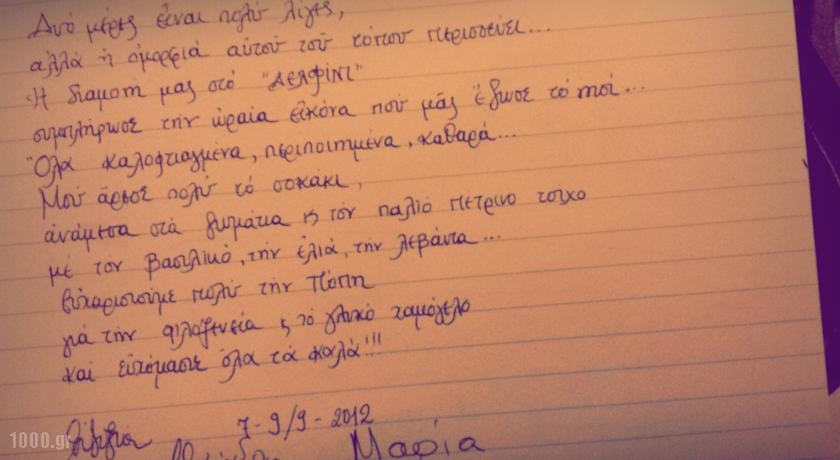 Δυό μέρες εἶναι πολύ λίγες,
ἀλλά ἡ ὀμορφιά αὐτοῦ τοῦ τόπου περισσεύει...
Ἡ διαμονή μας στό "ΔΕΛΦΙΝΙ"
συμπλήρωσε τήν ὡραία εἰκόνα πού μᾶς ἔδωσε τό νησί...
Ὅλα καλοφτιαγμένα, περιποιημένα, καθαρά...
Μοῦ ἄρεσε πολύ τό σοκάκι,
ἀνάμεσα στά δωμάτια ϗ τόν παλιό πέτρινο τοίχο
μέ τον βασιλικό, τήν ἐλιά, τήν λεβάντα...
Εὐχαριστοῦμε πολύ τήν Πόπη
γιά τήν φιλοξενεία ϗ τό γλυκό χαμόγελο
καί εὐχόμαστε ὅλα τά καλά!!!
7-9/9-2012
Μαρία
1000.gr